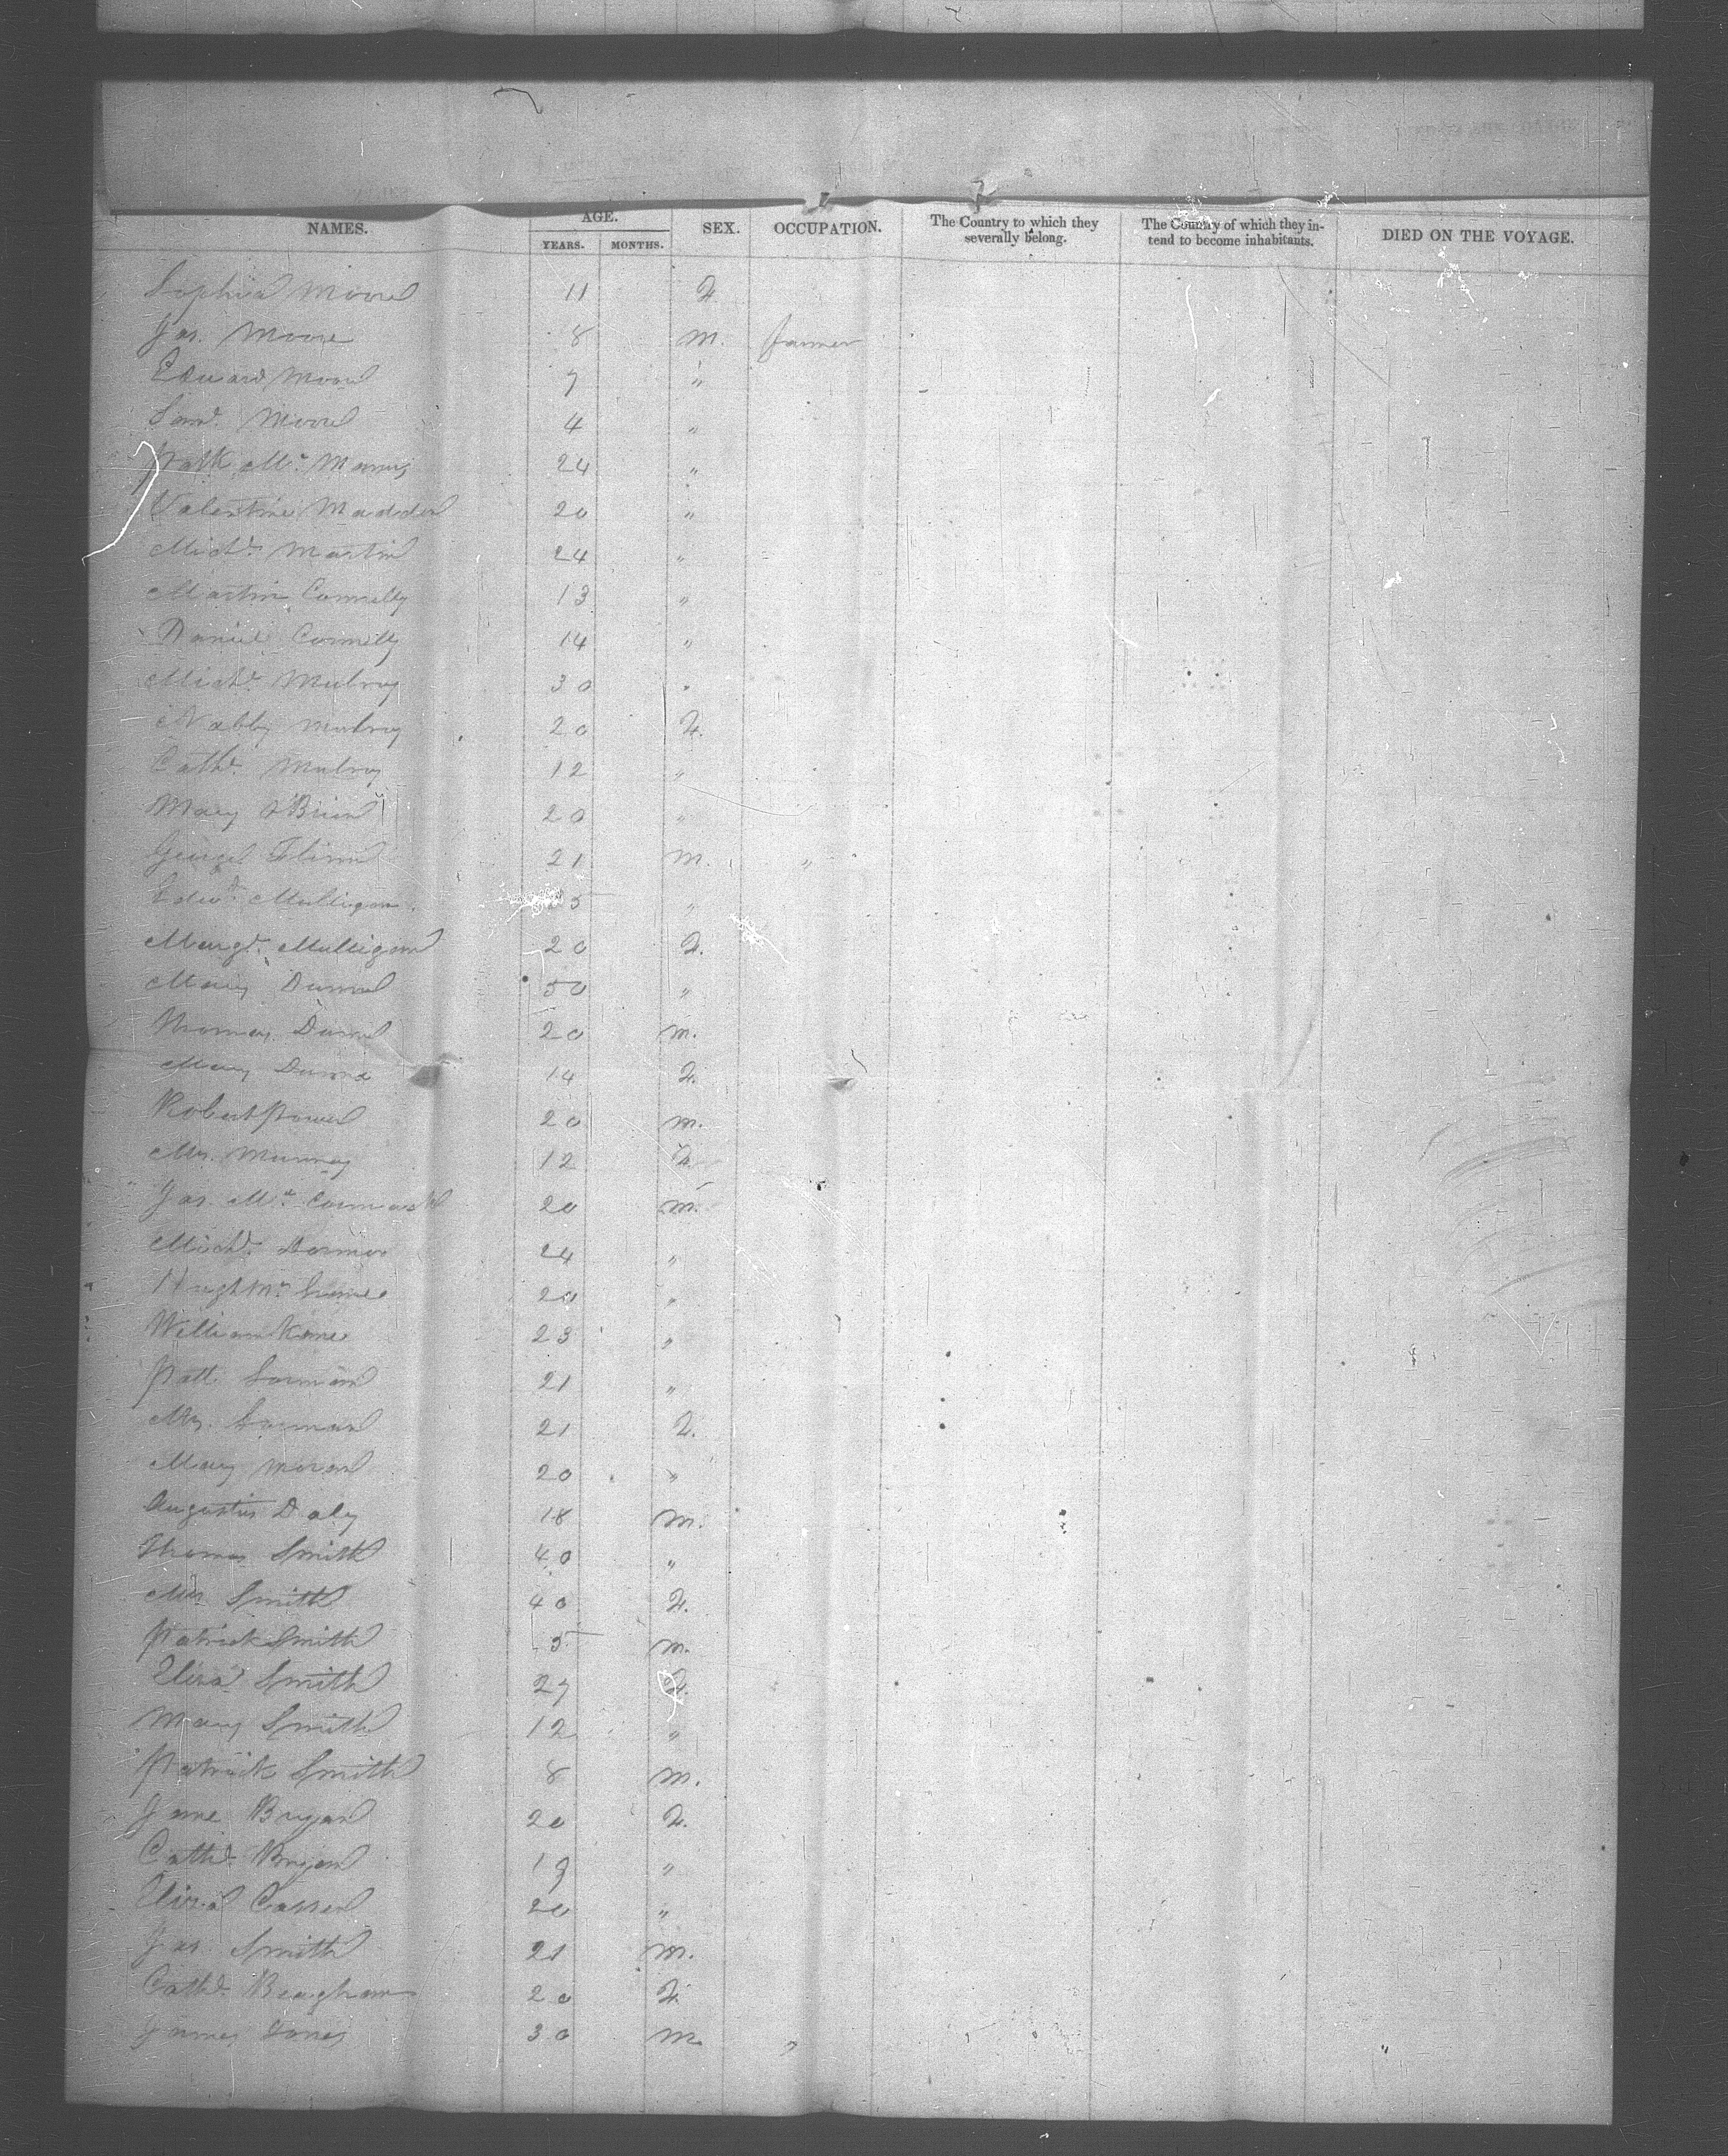 NAMES. AGE. SEX. OCCUPATION. The Country to which they severally belong. The Country of which they intend to become inhabitants. DIED ON THE VOYAGE.
YEARS. MONTHS.
Sophia Moore 11 F.
Jas. Moore 8 M. farmer
Edward Moore 7 "
Saml. Moore 4 "
Patk Mc. Manus 24 "
Valentine Madden 20 "
Michl. Martin 24 "
Martin Connelly 13 "
Daniel Connelly 14 "
Michl. Mulroy 30 "
Nabby Mulroy 20 F.
Cathe. Mulroy 12 "
Mary O'Brien 20 "
George Flinn 21 M. "
Edwd. Mulligan 5 "
Margt. Mulligan 20 F.
Mary Dunne 50 "
Thomas Dunne 20 M.
Mary Dunne 14 F.
Robert Power 20 M.
Mrs. Murray 12 F.
Jas. Mc. Cormack 20 M.
Michl. 24 "
Hugh Mc. 20 "
William Kane 23 "
Patk. Gorman 21 "
Mrs. Gorman 21 F.
Mary Moran 20 "
Augustus Daly 18 M.
Thomas Smith 40 "
Mrs Smith 40 F.
Patrick Smith 5 M.
Eliza Smith 27 F.
Mary Smith 12 "
Patrick Smith 8 M.
Jane Bryan 20 F.
Cathe. Bryan 19 "
Eliza 20 "
Jas. Smith 21 M.
Cathe. 20 F.
James Jones 30 M "